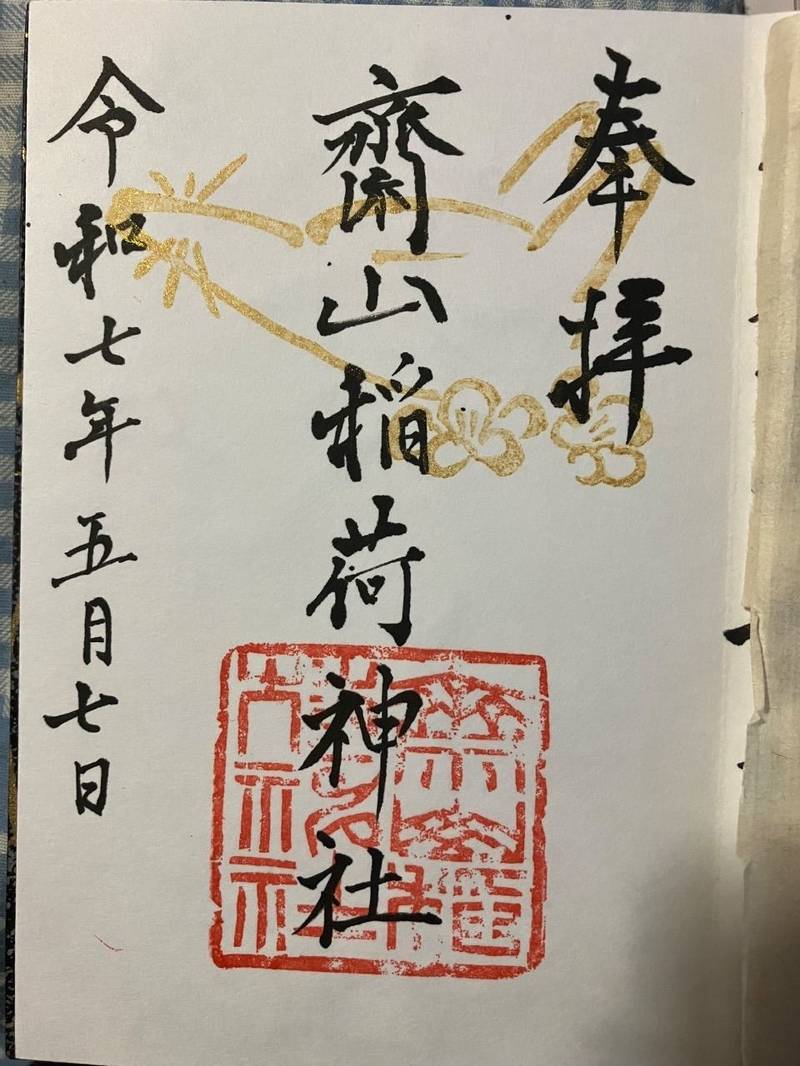 奉拝
齋山稲荷神社
令和七年五月七日